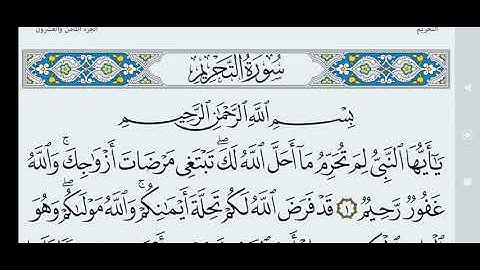 التحريم
الجزء الثامن والعشرون
سُورَةُ التَّحْرِيمِ
بِسْمِ اللَّهِ الرَّحْمَٰنِ الرَّحِيمِ
يَا أَيُّهَا النَّبِيُّ لِمَ تُحَرِّمُ مَا أَحَلَّ اللَّهُ لَكَ ۖ تَبْتَغِي مَرْضَاتَ أَزْوَاجِكَ ۚ وَاللَّهُ
غَفُورٌ رَّحِيمٌ ١ قَدْ فَرَضَ اللَّهُ لَكُمْ تَحِلَّةَ أَيْمَانِكُمْ ۚ وَاللَّهُ مَوْلَاكُمْ ۖ وَهُوَ